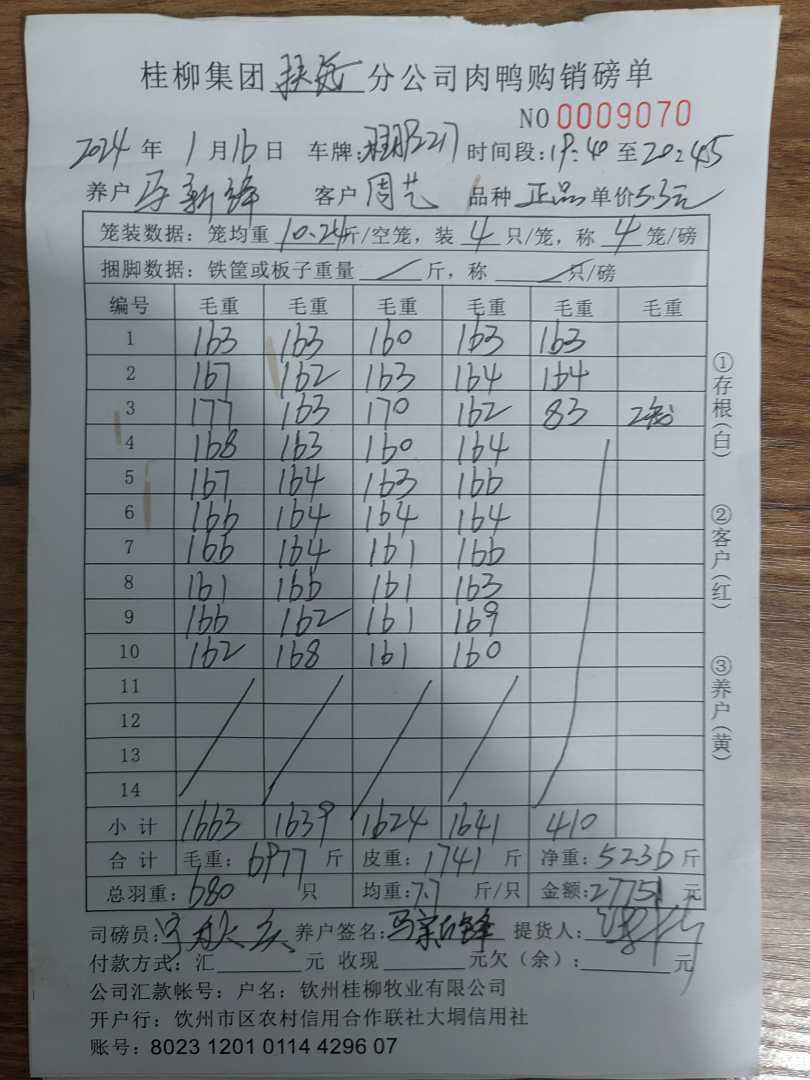 桂柳集团扶绥分公司肉鸭购销磅单
NO 0009070
2024年1月16日 车牌: 时间段:19:40至20:45
养户 马新锋 客户 周芝 品种 正品 单价5.3元
笼装数据：笼均重10.24斤/空笼，装4只/笼，称4笼/磅
捆脚数据：铁筐或板子重量 / 斤，称 / 只/磅
编号 毛重 毛重 毛重 毛重 毛重 毛重
1 163 163 160 163 163
2 167 162 163 164 164
3 177 163 170 162 83 2笼
4 168 163 160 164
5 167 164 163 166
6 166 164 164 164
7 166 164 161 166
8 161 166 161 163
9 166 162 161 169
10 162 168 161 160
11
12
13
14
小计 1663 1639 1624 1641 410
合计 毛重：6977斤 皮重：1741斤 净重：5236斤
总羽重：680只 均重：7.7斤/只 金额：27751元
司磅员： 养户签名：马新锋 提货人：
付款方式：汇 元 收现 元欠（余）： 元
公司汇款帐号：户名：钦州桂柳牧业有限公司
开户行：钦州市区农村信用合作联社大垌信用社
账号：8023 1201 0114 4296 07
①存根(白)
②客户(红)
③养户(黄)